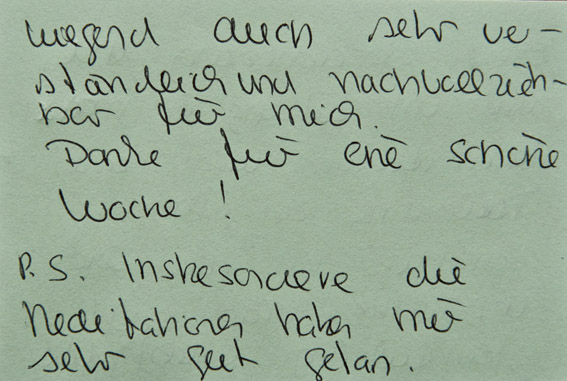 wiegend auch sehr ver-
ständlich und nachvollzieh-
bar für mich.
Danke für eine schöne
Woche !
P.S. Insbesondere die
Meditationen haben mir
sehr gut getan.